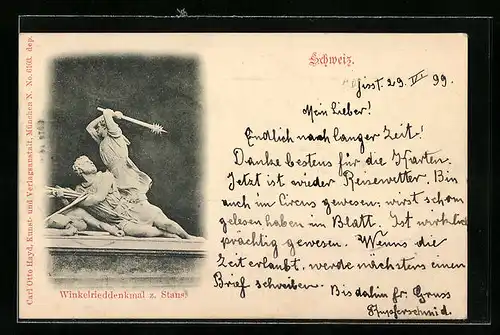 Schweiz.
29. VII 99.
Mein Lieber!
Endlich nach langer Zeit!
Danke bestens für die Karten.
Jetzt ist wieder Reisewetter. Bin
auch im Circus gewesen, wirst schon
gelesen haben im Blatt. Ist wirklich
prächtig gewesen. Wenns die
Zeit erlaubt, werde nächstens einen
Brief schreiben. Bis dahin fr. Gruss
Kupferschmid.
Winkelrieddenkmal z. Stans
Carl Otto Hayd, Kunst- und Verlagsanstalt, München N. dep.